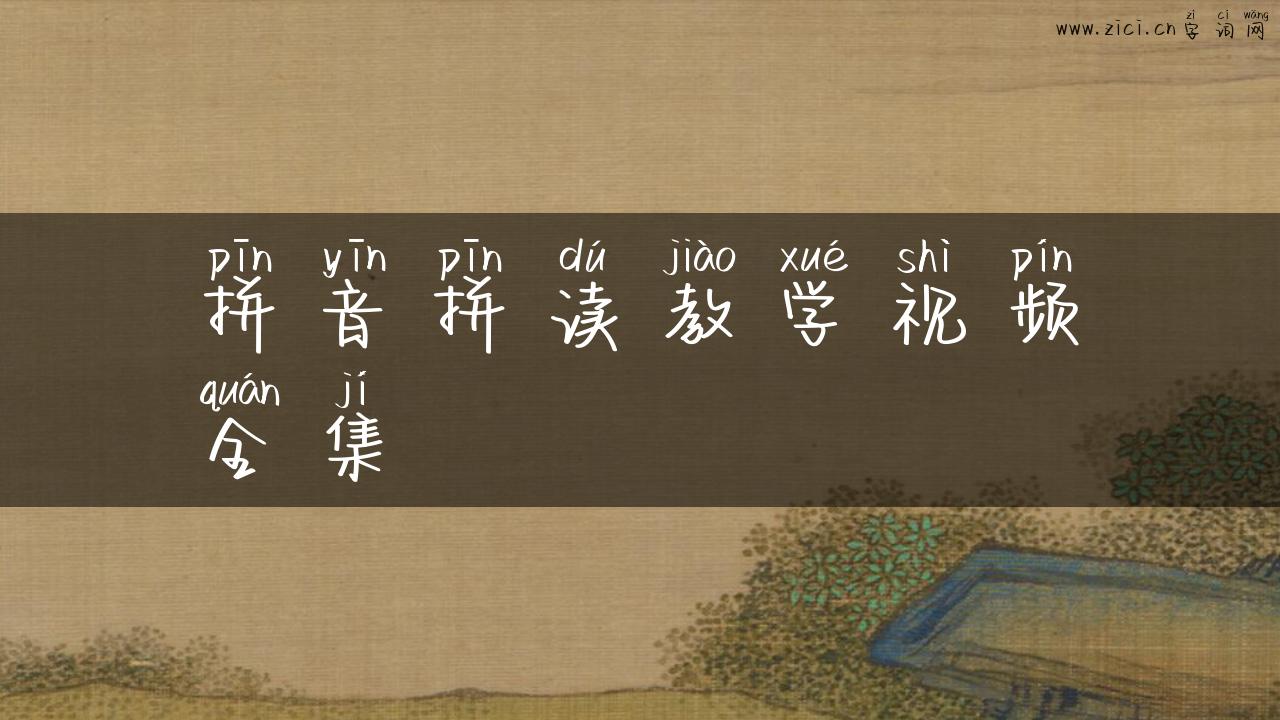 zì cí wǎng
www.zici.cn 字词网
pīn yīn pīn dú jiào xué shì pín
拼音拼读教学视频
quán jí
全集